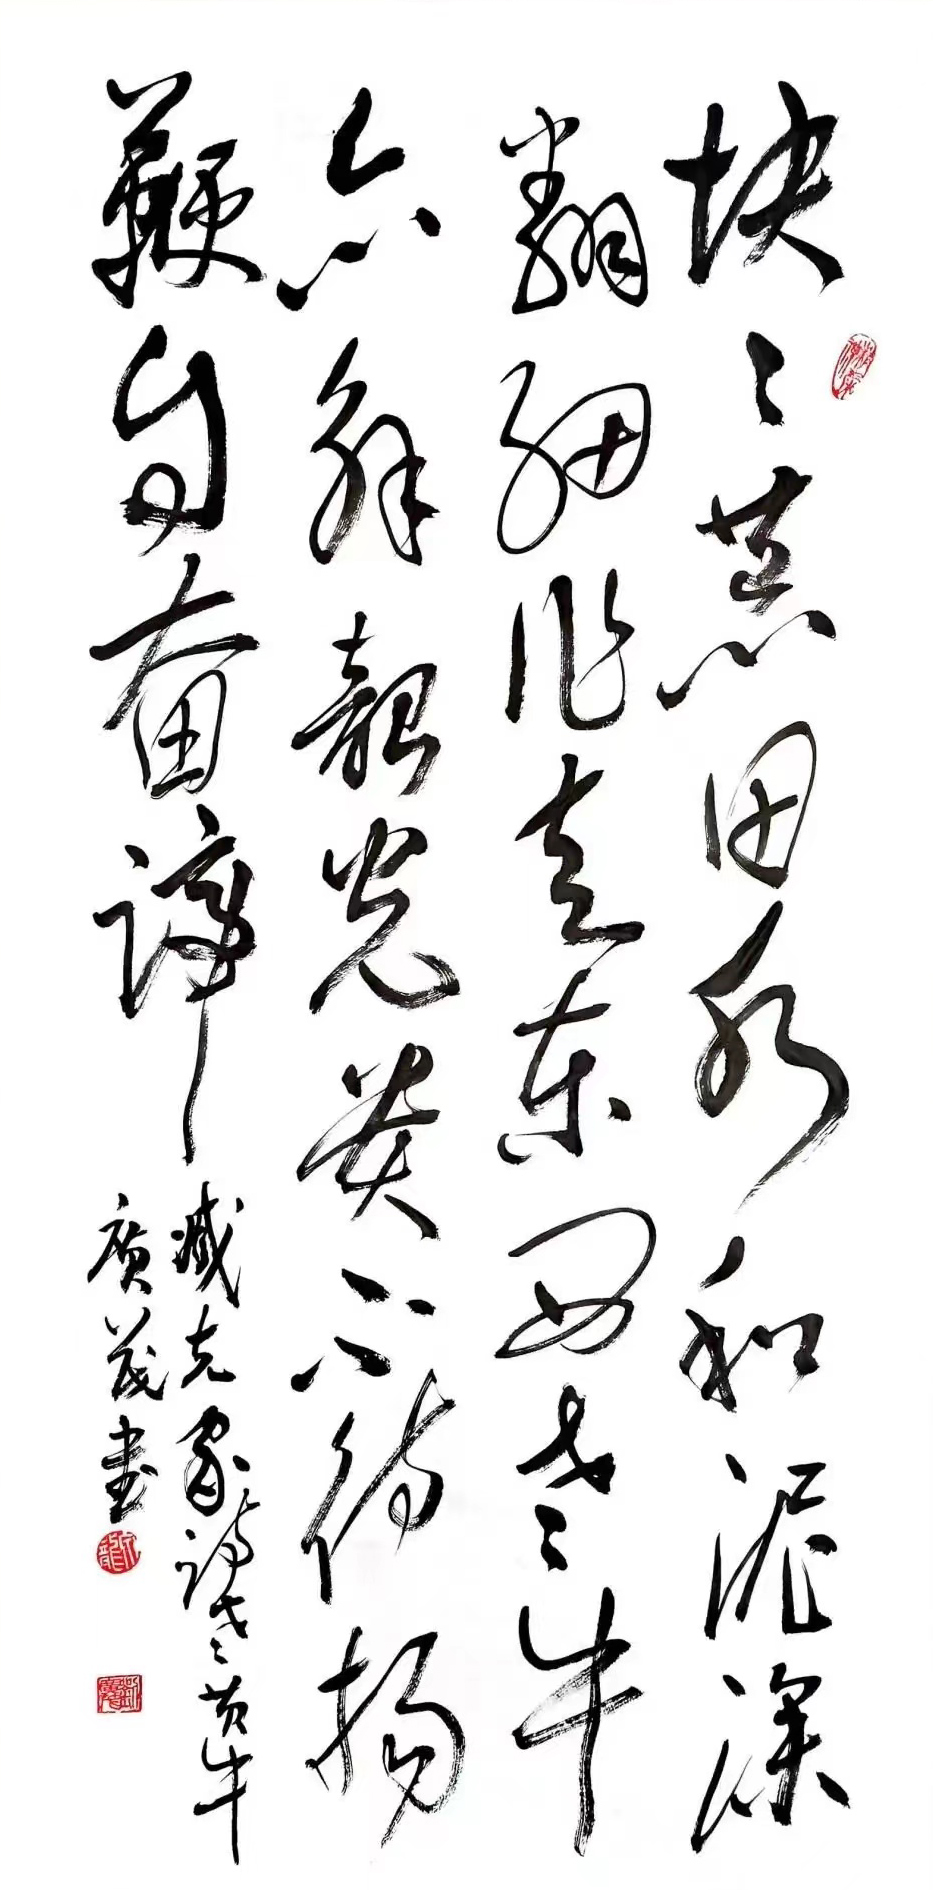 块々荒田水和泥深
翻细作走东西老牛
亦解韶光贵不待扬
鞭自奋蹄
臧克家诗老黄牛
廣茂書